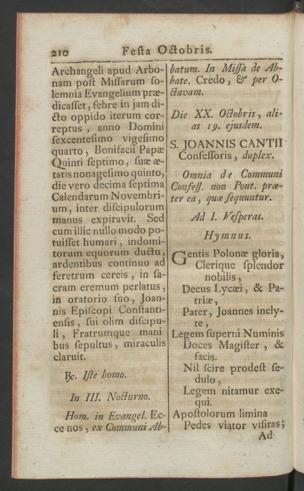 210 Festa Octobris.
Archangeli apud Arbo-
nam post Missarum so-
lemnia Evangelium præ-
dicasset, febre in jam di-
cto oppido iterum cor-
reptus, anno Domini
sexcentesimo vigesimo
quarto, Bonifacii Papæ
Quinti septimo, suæ æ-
tatis nonagesimo quinto,
die vero decima septima
Calendarum Novembri-
um, inter discipulorum
manus expiravit. Sed
cum illic nullo modo po-
tuisset humari, indomi-
torum equorum ductu,
ardentibus continuo ad
feretrum cereis, in sa-
cram eremum perlatus,
in oratorio suo, Joan-
nis Episcopi Constanti-
ensis, sui olim discipu-
li, Fratrumque mani
bus sepultus, miraculis
claruit.
℟. Iste homo.
In III. Nocturno.
Hom. in Evangel. Ec-
ce nos, ex Communi Ab-
batum. In Missa de Ab-
bate. Credo, & per O-
ctavam.
Die XX. Octobris, ali-
as 19. ejusdem.
S. JOANNIS CANTII
Confessoris, duplex.
Omnia de Communi
Confess. non Pont. præ-
ter ea, quæ sequuntur.
Ad I. Vesperas.
Hymnus.
Gentis Polonæ gloria,
Clerique splendor
nobilis,
Decus Lycæi, & Pa-
triæ,
Pater, Joannes incly-
te,
Legem superni Numinis
Doces Magister, &
facis.
Nil scire prodest se-
dulo,
Legem nitamur exe-
qui.
Apostolorum limina
Pedes viator visitas;
Ad